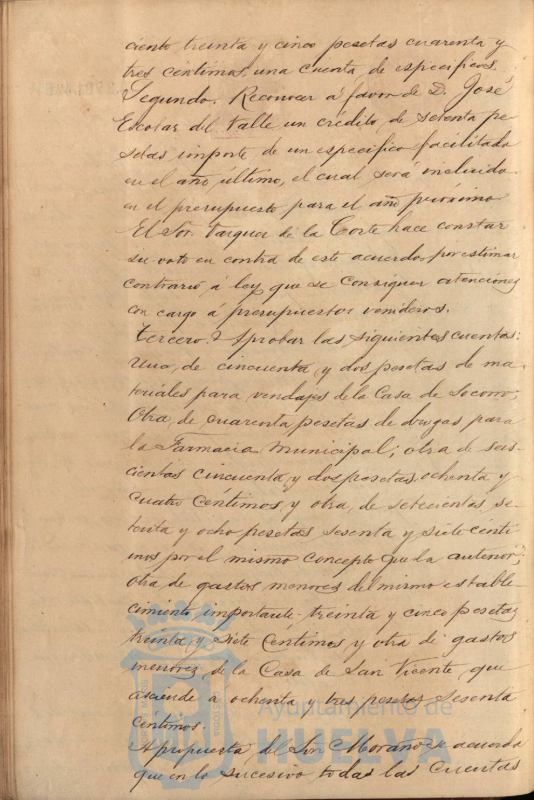 ciento treinta y cinco pesetas cuarenta y
tres centimos, una cuenta de especificos.
Segundo. Reconocer á favor de D. José
Escolar del Valle un crédito de setenta pe
setas importe de un especifico facilitado
en el año último, el cual será incluido
en el presupuesto para el año próximo
El Sor. Vazquez de la Corte hace constar
su voto en contra de este acuerdo por estimar
contrario á ley que se consiguen atenciones
con cargo á presupuestos venideros.
Tercero. Aprobar las siguientes cuentas:
Una, de cincuenta y dos pesetas de ma
teriales para vendajes de la Casa de Socorro;
Otra de cuarenta pesetas de drogas para
la Farmacia Municipal; otra de seis
cientas cincuenta y dos pesetas ochenta y
cuatro centimos y otra, de setecientas se
tenta y ocho pesetas sesenta y siete centi
mos por el mismo concepto que la anterior;
otra de gastos menores del mismo estable
cimiento importante treinta y cinco pesetas
treinta y siete centimos y otra de gastos
menores de la Casa de San Vicente, que
asciende a ochenta y tres pesetas sesenta
centimos.
A propuesta del Sor. Morano se acuerda
que en lo sucesivo todas las cuentas
Ayuntamiento de
HUELVA